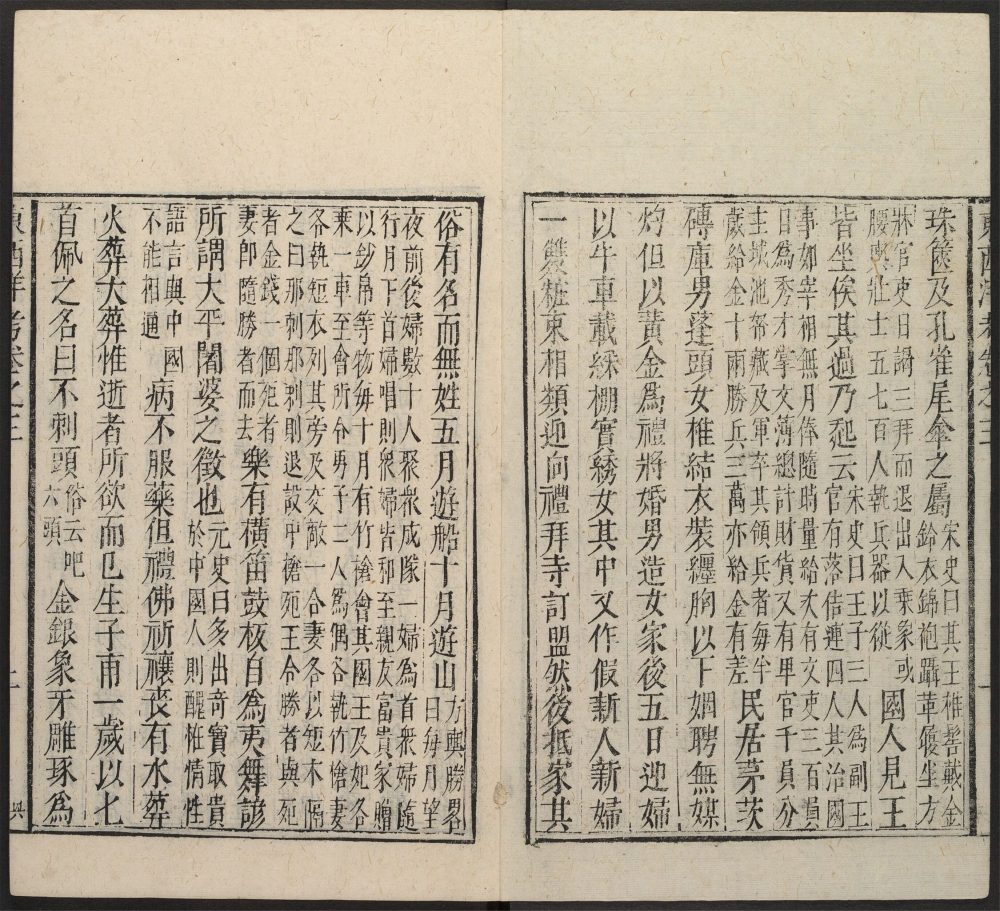 東西洋考卷之三
一
珠篋及孔雀尾傘之屬宋史曰其王椎髻戴金
鈴衣錦袍躡革履坐方
牀官吏日謁三拜而退出入乘象或
腰輿壯士五七百人執兵器以從國人見王
皆坐俟其過乃起云宋史曰王子三人為副王
官有落佶連四人共治國
事如宰相無月俸隨時量給次有文吏三百員
目為秀才掌文簿總計財貨又有卑官千員分
主城池帑藏及軍卒其領兵者每半
歲給金十兩勝兵三萬亦給金有差民居茅茨
磚庫男蓬頭女椎結衣裝纏胸以下婣聘無媒
灼但以黃金為禮將婚男造女家後五日迎婦
以牛車載綵棚實綉女其中又作假新人新婦
一雙粧束相類迎向禮拜寺訂盟然後抵家其
俗有名而無姓五月遊船十月遊山方輿勝畧
曰每月望
夜前後婦數十人聚衆成隊一婦為首衆婦隨
行月下首婦唱則衆婦皆和至親友富貴家贈
以鈔帛等物每十月有竹槍會其國王及妃各
乘一車至會所令男子二人為偶各執竹槍妻
各執短衣列其旁及交敵一合妻各以短木隔
之曰那剌那剌則退設中槍死王令勝者與死
者金錢一個死者
妻郎隨勝者而去樂有橫笛鼓板自為夷舞諺
所謂大平闍婆之徵也元史曰多出奇寶取貴
於中國人則醒恠情性
語言與中國
不能相通病不服藥但禮佛祈禳喪有水葬
火葬犬葬惟逝者所欲而已生子甫一歲以七
首佩之名曰不刺頭俗云吧
六頭金銀象牙雕琢為
東西洋考卷之三
二